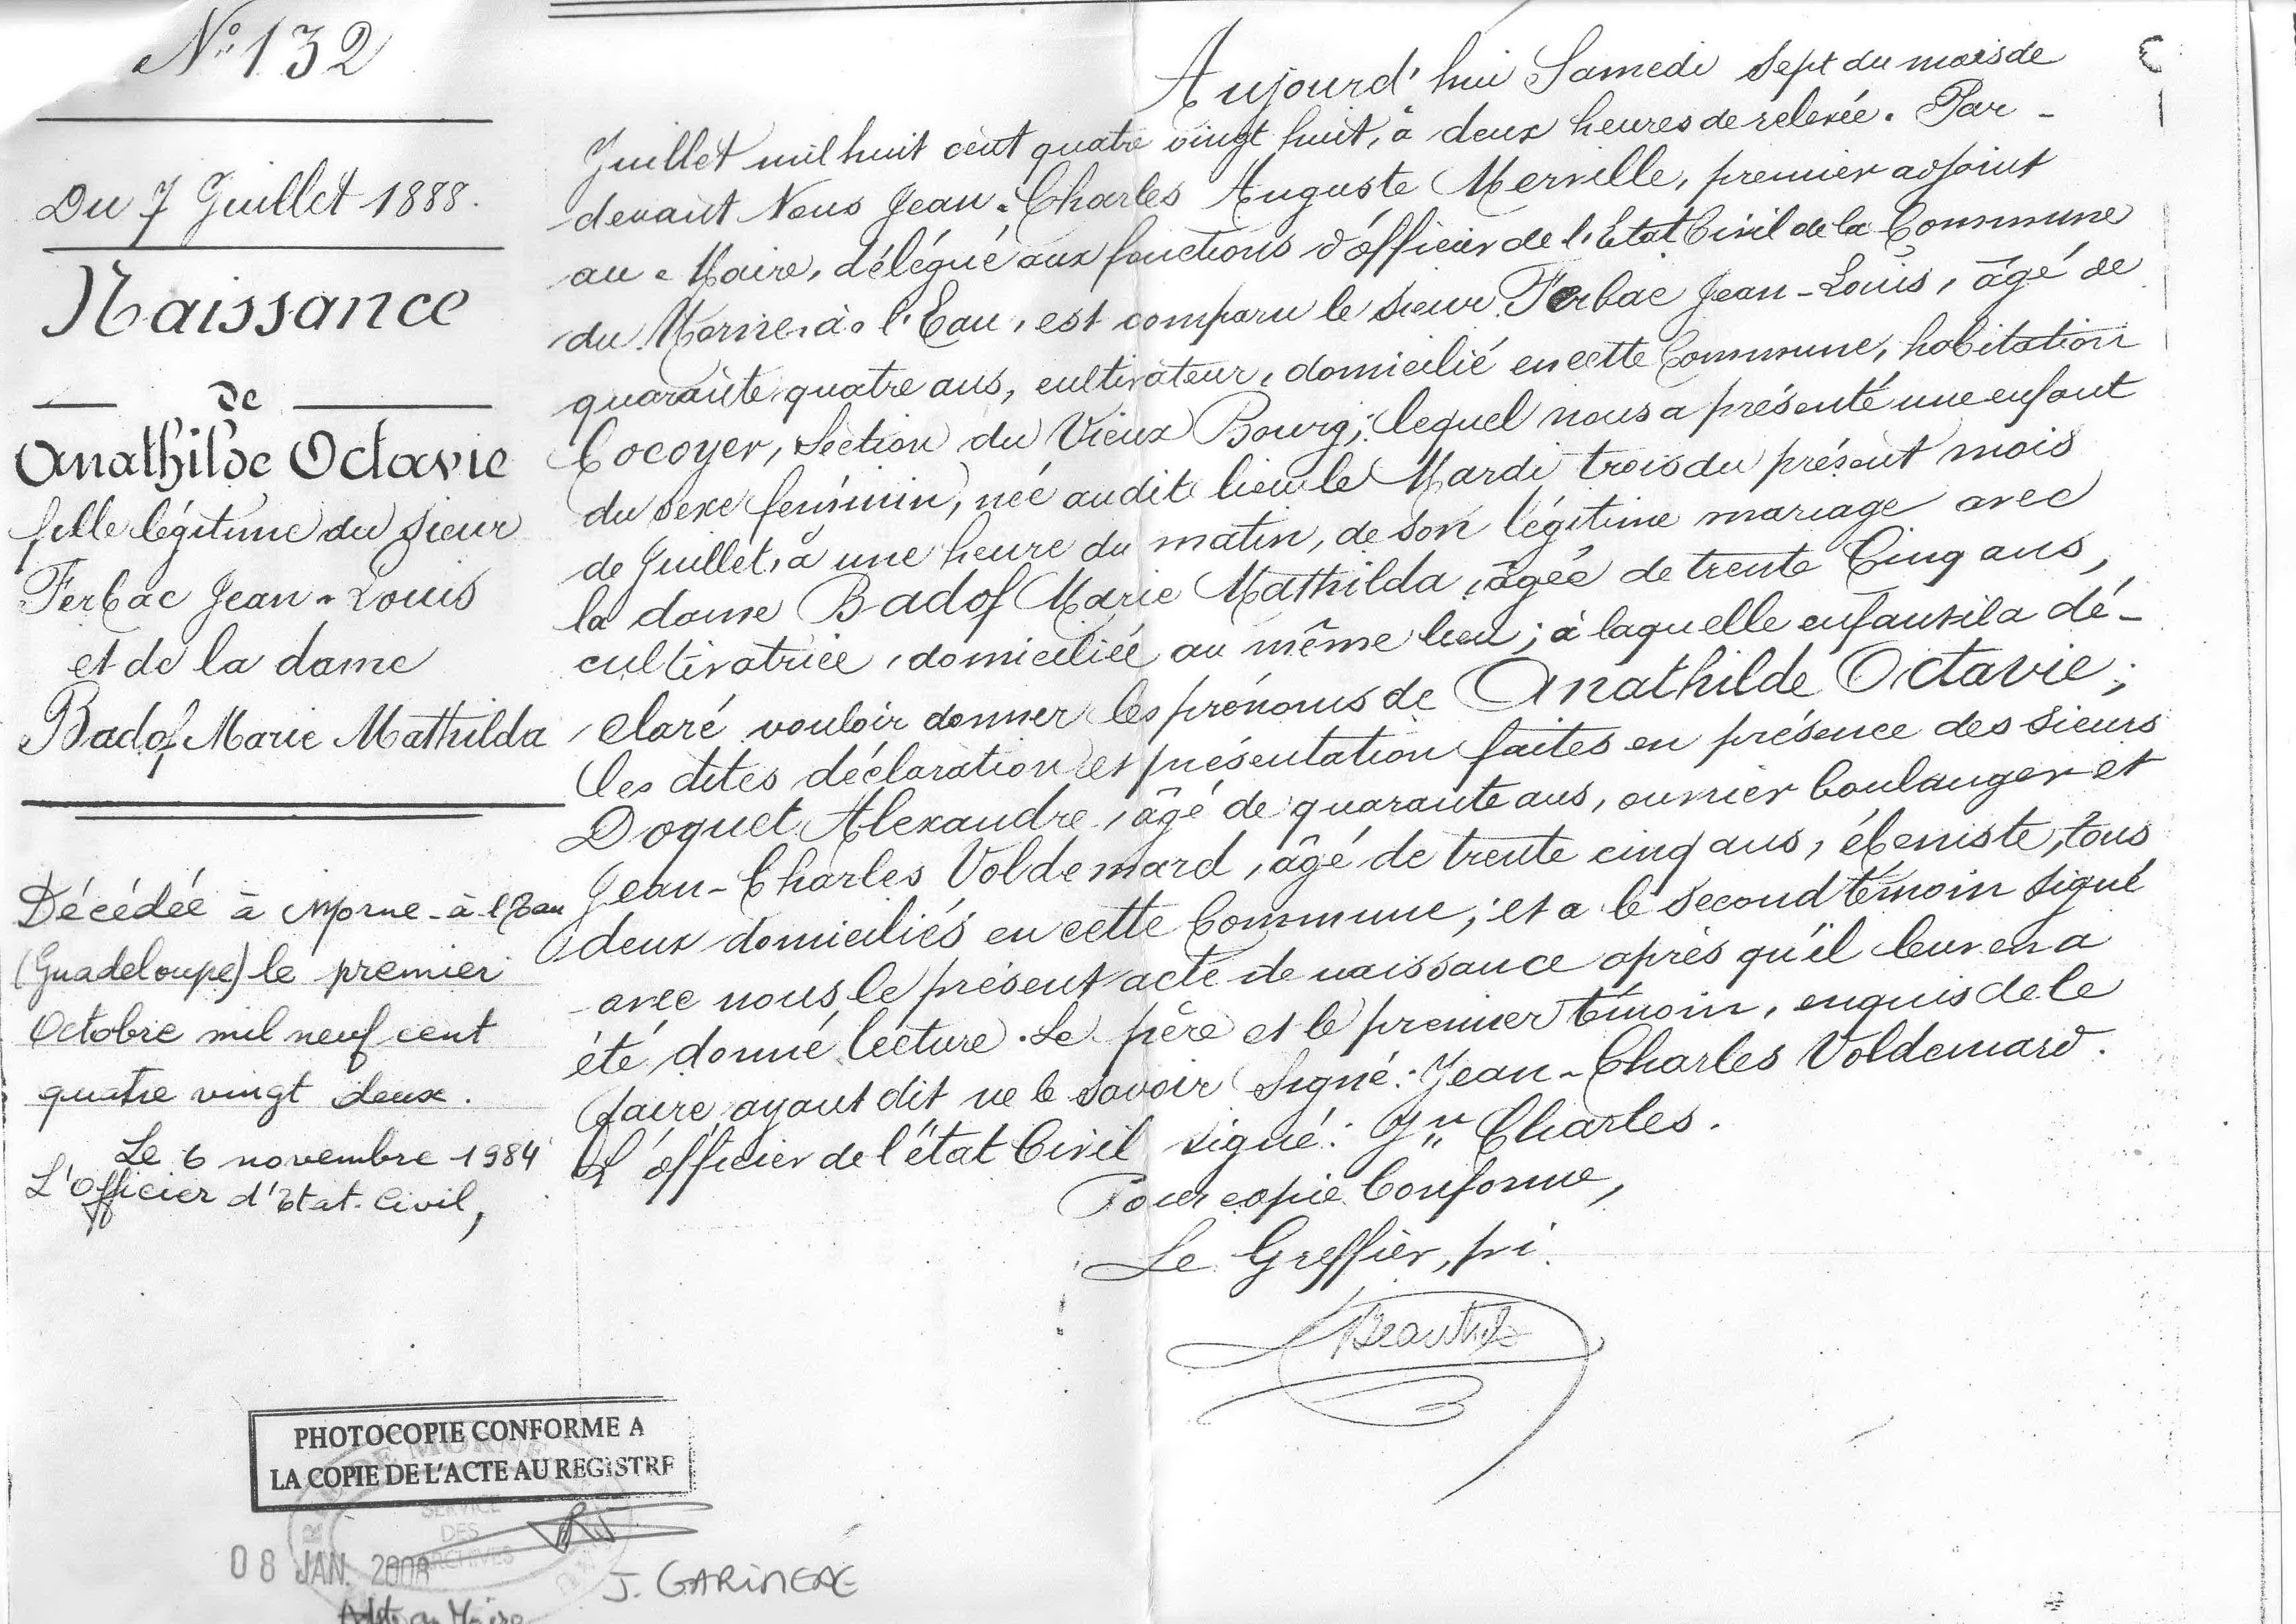 N° 132
Du 7 Juillet 1888.
Naissance
de
Anathilde Octavie
fille légitime du sieur
Ferbac Jean-Louis
et de la dame
Badof Marie Mathilda
Décédée à Morne-à-l'Eau
(Guadeloupe) le premier
Octobre mil neuf cent
quatre vingt deux.
Le 6 novembre 1984
L'Officier d'Etat-Civil,
Aujourd'hui Samedi sept du mois de
Juillet mil huit cent quatre vingt huit, à deux heures de relevée. Par-
devant Nous Jean-Charles Auguste Merville, premier adjoint
au Maire, délégué aux fonctions d'officier de l'Etat Civil de la Commune
du Morne-à-l'Eau, est comparu le sieur Ferbac Jean-Louis, âgé de
quarante quatre ans, cultivateur, domicilié en cette Commune, habitation
Cocoyer, Section du Vieux Bourg; lequel nous a présenté une enfant
du sexe féminin, née audit lieu le Mardi trois du présent mois
de Juillet, à une heure du matin, de son légitime mariage avec
la dame Badof Marie Mathilda, âgée de trente Cinq ans,
cultivatrice, domiciliée au même lieu; à laquelle enfant il a dé-
claré vouloir donner les prénoms de Anathilde Octavie;
les dites déclaration et présentation faites en présence des sieurs
Doquet Alexandre, âgé de quarante ans, ouvrier boulanger et
Jean-Charles Voldemard, âgé de trente cinq ans, ébeniste, tous
deux domiciliés en cette Commune; et a le second témoin signé
avec nous le présent acte de naissance après qu'il leur en a
été donné lecture. Le père et le premier témoin, enquis de le
faire, ayant dit ne le savoir Signé: Jean-Charles Voldemard.
L'officier de l'état Civil signé: Jn Charles.
Pour copie Conforme,
Le Greffier, pi.
PHOTOCOPIE CONFORME A
LA COPIE DE L'ACTE AU REGISTRE
SERVICE
DES
ARCHIVES
08 JAN. 2008